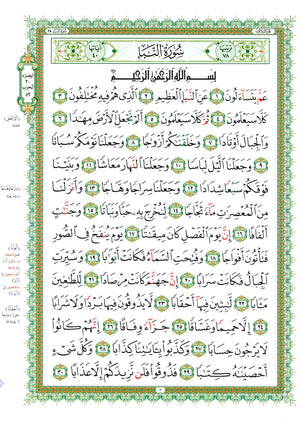 سُورَةُ النَّبَإِ
بِسْمِ اللَّهِ الرَّحْمَٰنِ الرَّحِيمِ
عَمَّ يَتَسَاءَلُونَ ١ عَنِ النَّبَإِ الْعَظِيمِ ٢ الَّذِي هُمْ فِيهِ مُخْتَلِفُونَ ٣
كَلَّا سَيَعْلَمُونَ ٤ ثُمَّ كَلَّا سَيَعْلَمُونَ ٥ أَلَمْ نَجْعَلِ الْأَرْضَ مِهَادًا ٦
وَالْجِبَالَ أَوْتَادًا ٧ وَخَلَقْنَاكُمْ أَزْوَاجًا ٨ وَجَعَلْنَا نَوْمَكُمْ سُبَاتًا
٩ وَجَعَلْنَا اللَّيْلَ لِبَاسًا ١٠ وَجَعَلْنَا النَّهَارَ مَعَاشًا ١١ وَبَنَيْنَا
فَوْقَكُمْ سَبْعًا شِدَادًا ١٢ وَجَعَلْنَا سِرَاجًا وَهَّاجًا ١٣ وَأَنزَلْنَا
مِنَ الْمُعْصِرَاتِ مَاءً ثَجَّاجًا ١٤ لِّنُخْرِجَ بِهِ حَبًّا وَنَبَاتًا ١٥ وَجَنَّاتٍ
أَلْفَافًا ١٦ إِنَّ يَوْمَ الْفَصْلِ كَانَ مِيقَاتًا ١٧ يَوْمَ يُنفَخُ فِي الصُّورِ
فَتَأْتُونَ أَفْوَاجًا ١٨ وَفُتِحَتِ السَّمَاءُ فَكَانَتْ أَبْوَابًا ١٩ وَسُيِّرَتِ
الْجِبَالُ فَكَانَتْ سَرَابًا ٢٠ إِنَّ جَهَنَّمَ كَانَتْ مِرْصَادًا ٢١ لِّلطَّاغِينَ
مَآبًا ٢٢ لَّابِثِينَ فِيهَا أَحْقَابًا ٢٣ لَّا يَذُوقُونَ فِيهَا بَرْدًا وَلَا شَرَابًا
٢٤ إِلَّا حَمِيمًا وَغَسَّاقًا ٢٥ جَزَاءً وِفَاقًا ٢٦ إِنَّهُمْ كَانُوا
لَا يَرْجُونَ حِسَابًا ٢٧ وَكَذَّبُوا بِآيَاتِنَا كِذَّابًا ٢٨ وَكُلَّ شَيْءٍ
أَحْصَيْنَاهُ كِتَابًا ٢٩ فَذُوقُوا فَلَن نَّزِيدَكُمْ إِلَّا عَذَابًا ٣٠